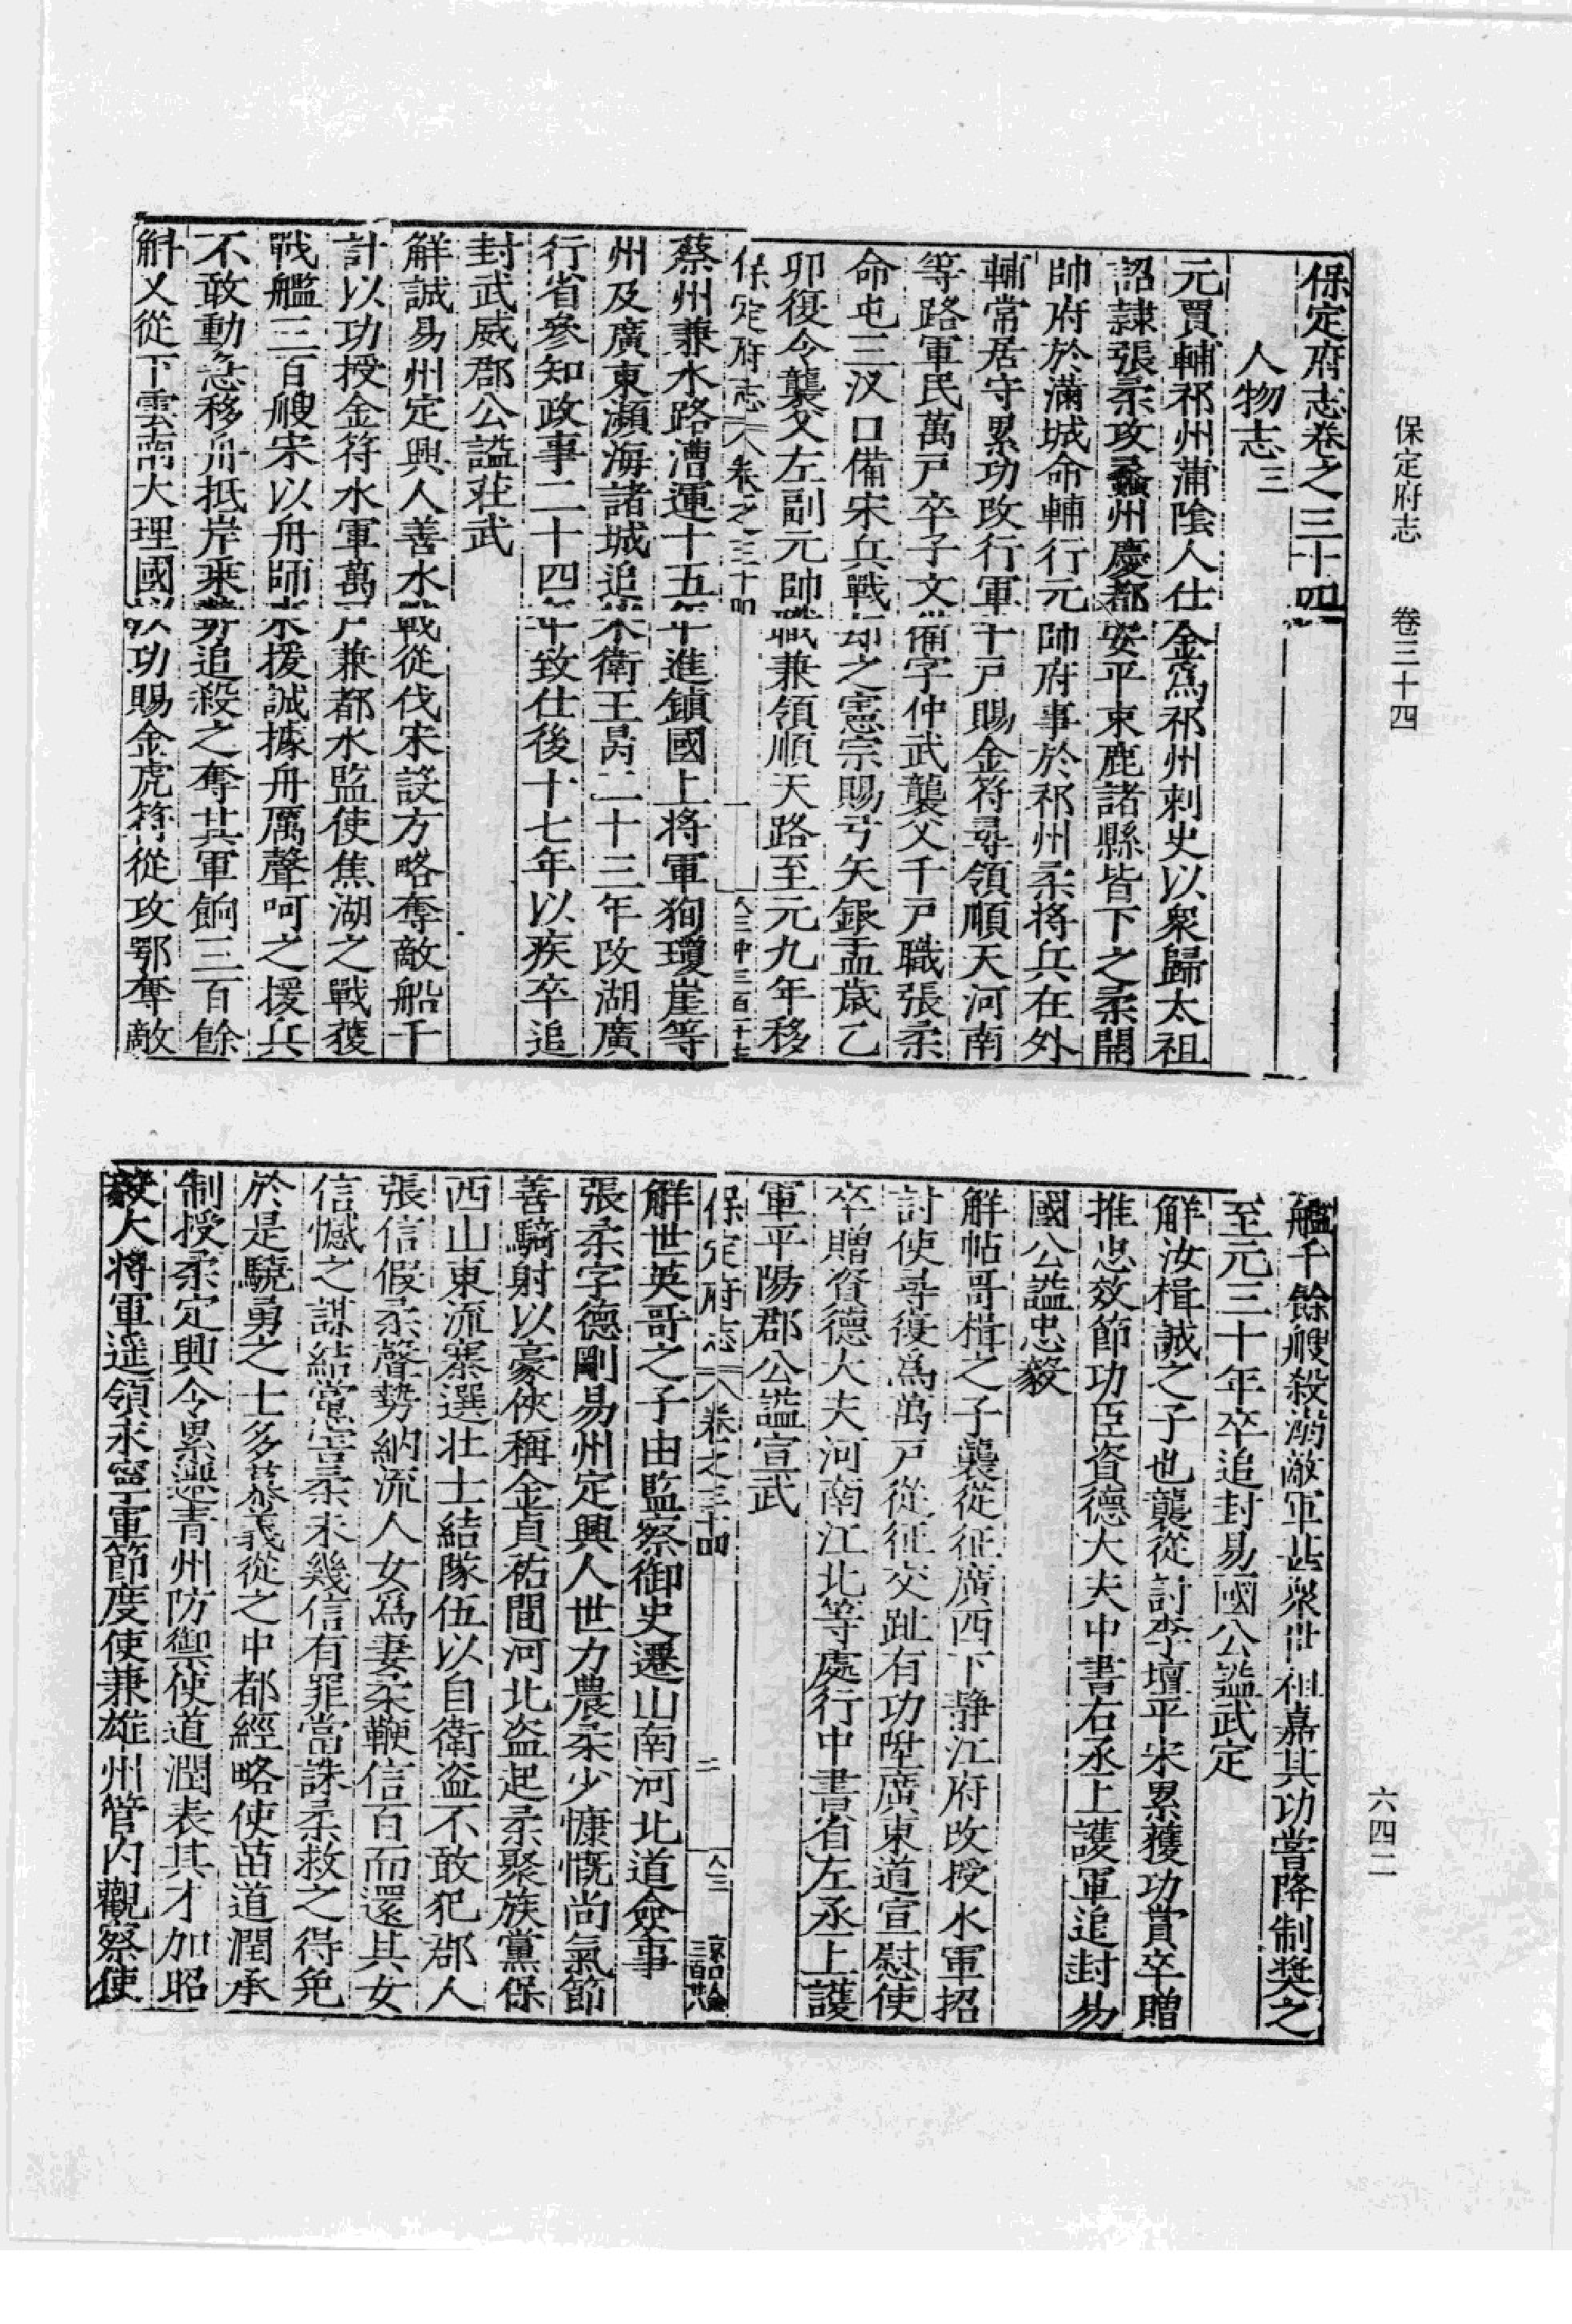 保定府志　卷三十四
保定府志卷之三十四
人物志三
元賈輔祁州蒲陰人仕金爲祁州刺史以衆歸太祖
詔隷張柔攻蠡州慶都安平束鹿諸縣皆下之柔開
帥府於滿城命輔行元帥府事於祁州柔將兵在外
輔常居守累功改行軍千戸賜金符尋領順天河南
等路軍民萬戸卒子文備字仲武襲父千戸職張柔
命屯三汊口備宋兵戰却之憲宗賜弓矢銀盂歲乙
卯復令襲父左副元帥職兼領順天路至元九年移
保定府志　卷之三十四　一
蔡州兼水路漕運十五年進鎮國上將軍狥瓊崖等
州及廣東瀕海諸城追宋衛王昺二十三年改湖廣
行省參知政事二十四年致仕後十七年以疾卒追
封武威郡公謚莊武
解誠易州定興人善水戰從伐宋設方略奪敵船千
計以功授金符水軍萬戸兼都水監使焦湖之戰獲
戰艦三百艘宋以舟師來援誠據舟厲聲呵之援兵
不敢動急移舟抵岸乘勢追殺之奪其軍餉三百餘
斛又從下雲南大理國以功賜金虎符從攻鄂奪敵
艦千餘艘殺溺敵軍甚衆世祖嘉其功嘗降制奬之
至元三十年卒追封易國公謚武定
解汝楫誠之子也襲從討李壇平宋累獲功賞卒贈
推忠效節功臣資德大夫中書右丞上護軍追封易
國公謚忠毅
解帖哥楫之子襲從征廣西下靜江府改授水軍招
討使尋復爲萬戸從征交趾有功陞廣東道宣慰使
卒贈資德大夫河南江北等處行中書省左丞上護
軍平陽郡公謚宣武
保定府志　卷之三十四　二
解世英哥之子由監察御史遷山南河北道僉事
張柔字德剛易州定興人世力農柔少慷慨尚氣節
善騎射以豪俠稱金貞祐間河北盗起柔聚族黨保
西山東流寨選壮士結隊伍以自衛盗不敢犯郡人
張信假柔聲勢納流人女爲妻柔鞭信百而還其女
信憾之謀結黨害柔未幾信有罪當誅柔救之得免
於是驍勇之士多慕義從之中都經略使苗道潤承
制授柔定興令累遷青州防禦使道潤表其才加昭
毅大將軍遥領永寧軍節度使兼雄州管内觀察使
六四二